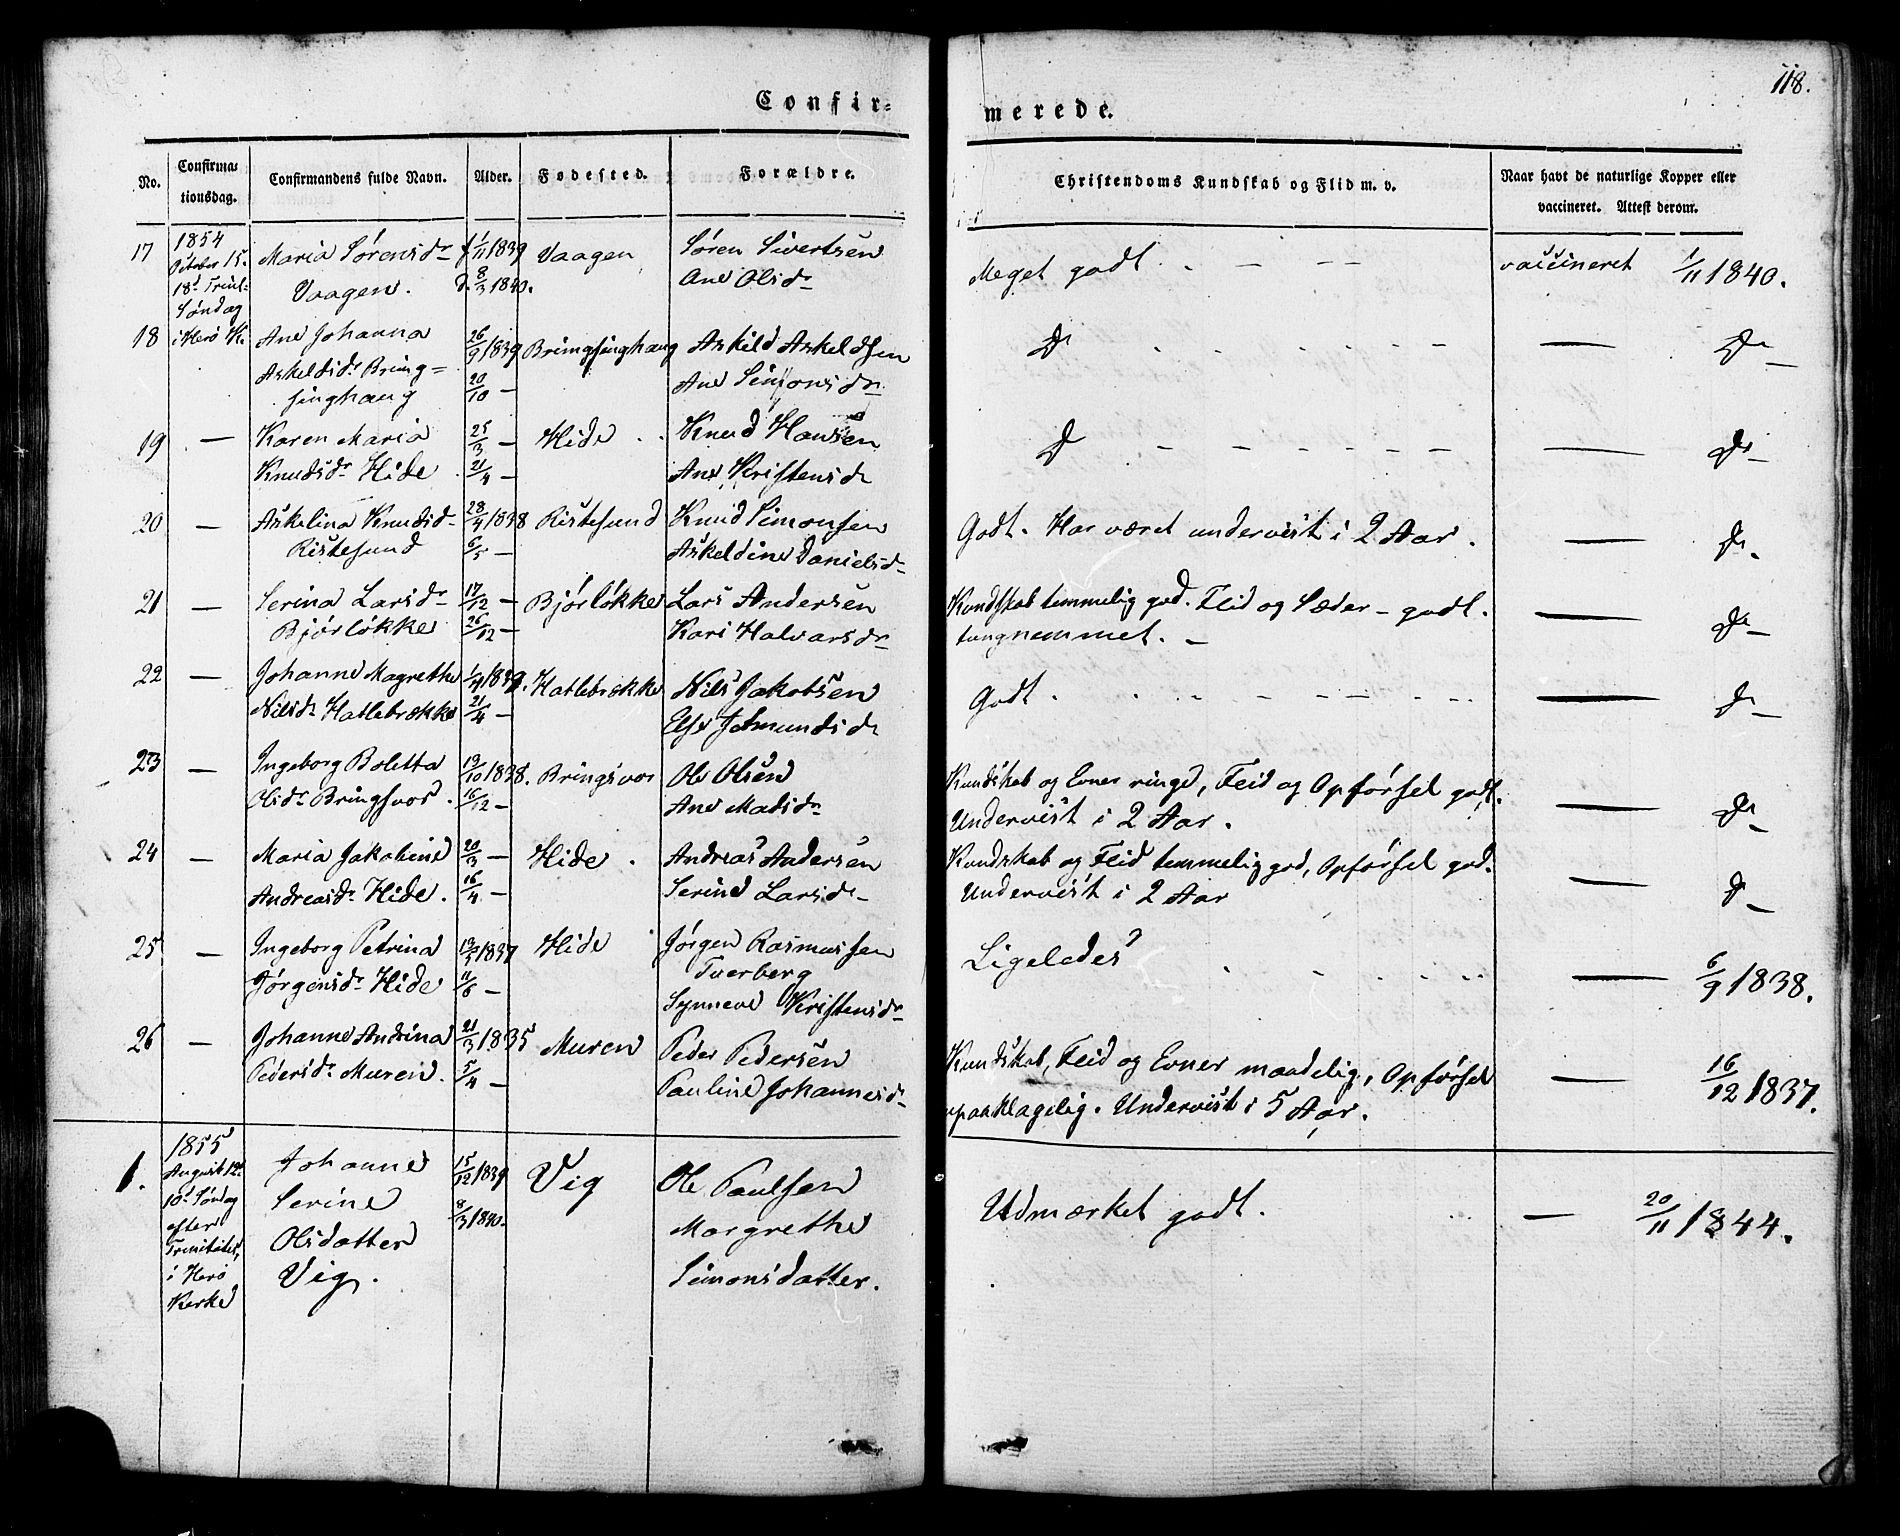 118.
Confir= merede.
No. Confirmationsdag. Confirmandens fulde Navn. Alder. Fødested. Forældre. Christendoms Kundskab og Flid m. v. Naar havt de naturlige Kopper eller vaccineret. Attest derom.
17 1854 October 15. 18d Trinit. Søndag i Herø K. Maria Sørensdr f 1/11 1839 Vaagen Søren Sivertsen Meget godt - - - vaccineret 1/11 1840.
Vaagen. d. 8/3 1840. Ane Olsdr
18 Ane Johanna 26/9 1839 Bringsinghaug Askild Askeldsen Do - - - — Do —
Askeldsdr Bring= 20/10 — Ane Simonsdr
singhaug
19 — Karen Maria 25/3 — Hide Knud Hansen Do - - - — Do —
Knudsdr Hide 21/4 — Ane Kristensdr
20 — Askelina Knudsdr 28/4 1838 Ristesund Knud Simonsen Godt. Har været undervist i 2 Aar. — Do.
Ristesund 6/5 — Askeldine Danielsdr
21 — Serina Larsdr 17/12 — Bjørløkke Lars Andersen Kundskab temmelig god. Flid og Sæder - godt. — Do —
Bjørløkke 26/12 — Kari Halvarsdr tungnemmet. —
22 — Johanne Magrethe 1/4 1839. Hatlebrække Nils Jakobsen Godt. - - - — Do —
Nilsdr Hatlebrække 21/4 — Else Jetmundsdr
23 — Ingeborg Boletta 19/10 1838. Bringsvor Ole Olsen Kundskab og Evner ringe, Flid og Opførsel godt. — Do —
Olsdr Bringsvor. 16/12 — Ane Madsdr Undervist i 2 Aar.
24 — Maria Jakobine 20/3 — Hide. Andreas Andersen Kundskab og Flid temmelig god, Opførsel god. — Do —
Andreasdr Hide. 16/4 — Serine Larsdr Undervist i 2 Aar
25 — Ingeborg Petrina 19/5 1837 Hide Jørgen Rasmussen Ligeledes - - - — 6/9 1838.
Jørgensdr Hide 11/6 — Tverberg
Synneve Kristensdr
26 — Johanne Andrina 21/3 1835 Muren Peder Pedersen Kundskab, Flid og Evner maadelig, Opførsel — 16/12 1837.
Pedersdr Muren. 5/4 — Pauline Johannesdr upaaklagelig. Undervist i 5 Aar.
1. 1855 August 12te 10d Søndag efter Trinitatis, i Herø Kirke Johanne 15/12 1839 Vig Ole Paulsen Udmærket godt. — 20/11 1844.
Serine 8/3 1840. Margrethe
Olsdatter Simonsdatter.
Vig.